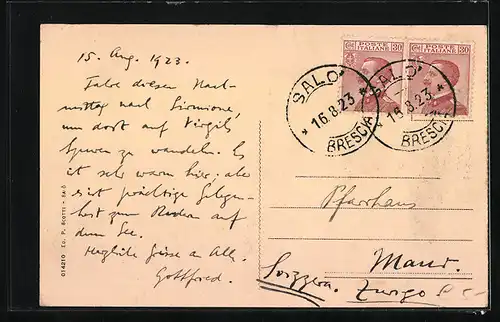 15. Aug. 1923.
Fahre diesen Nach-
mittag nach Sirmione,
um dort auf Virgils
Spuren zu wandeln. Es
ist sehr warm hier; aber
eine prächtige Gelegen-
heit zum Rudern auf
dem See.
Herzliche Grüsse an Alle.
Gottfried.
POSTE ITALIANE 30
POSTE ITALIANE 30
SALO'
* 16.8.23 *
BRESCIA
SALO'
16.8.23 *
BRESCIA
Pfarrhaus
Maur.
Svizzera. Zurigo
014210 Ed. P. - Salò